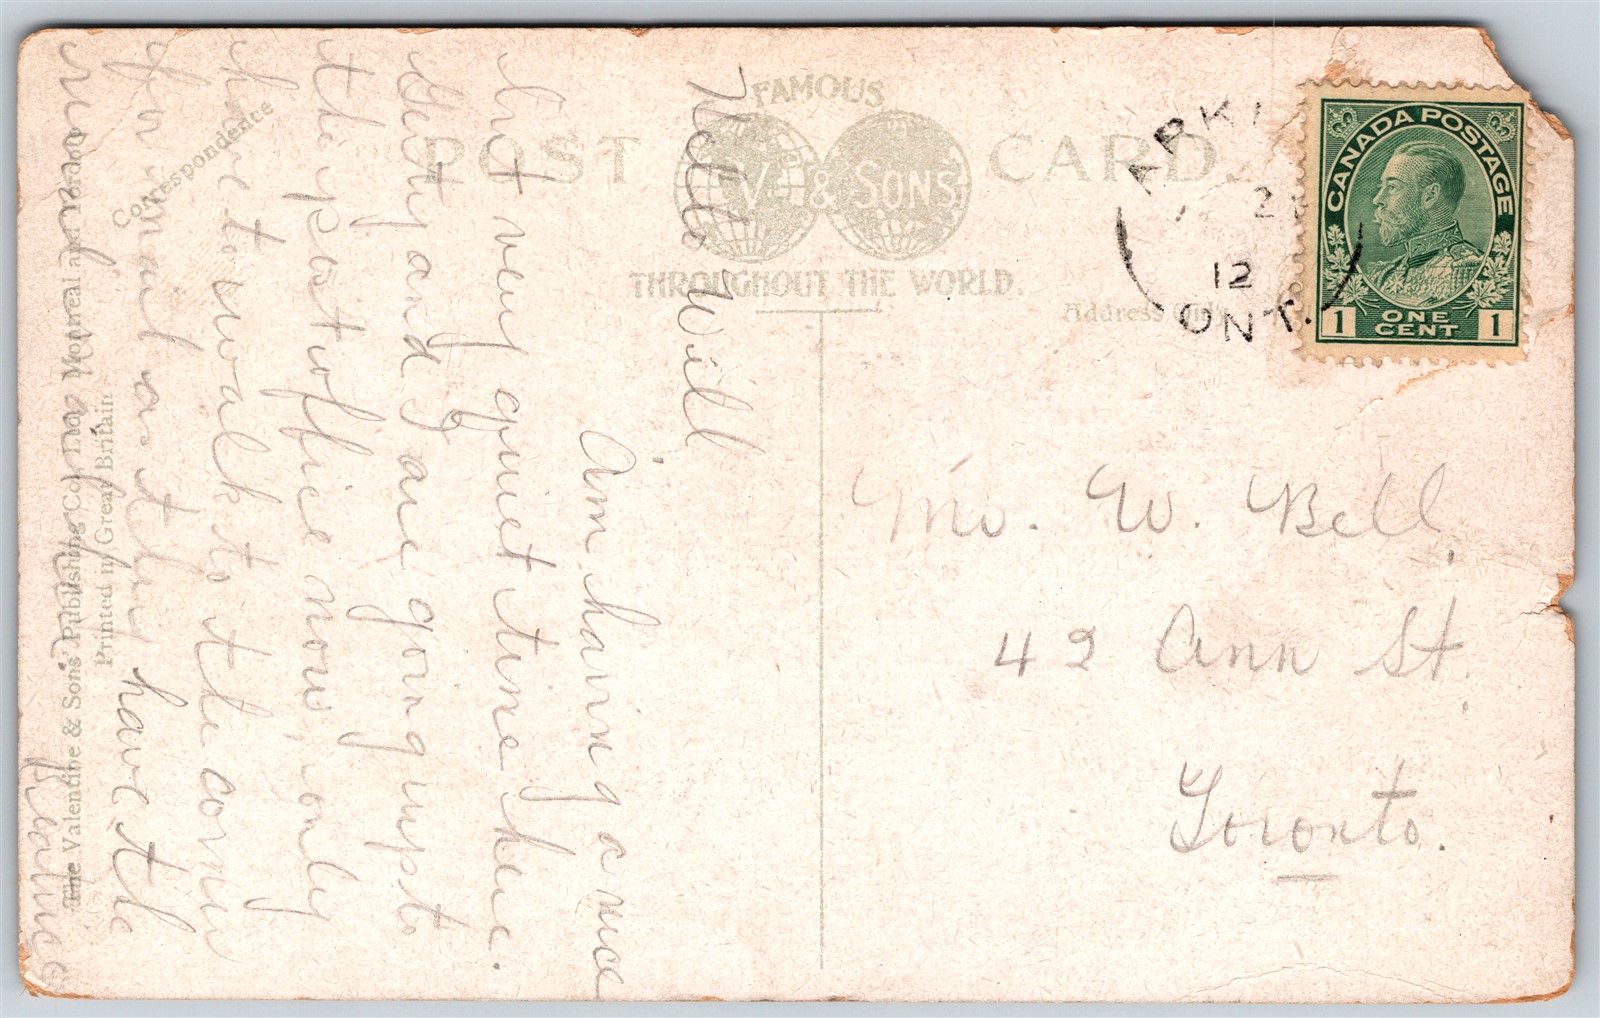 FAMOUS
POST CARD.
V & SONS
THROUGHOUT THE WORLD.
Correspondence
Address Only
ARK
2
12
ONT.
CANADA POSTAGE
1 ONE CENT 1
Mr. W. Bell,
42 Ann St.,
Toronto.
Hello Will
Am having a nice
but very quiet time here.
Getty and I are going up to
the postoffice now, only
have to walk to the corner
for mail as they have the
rural
The Valentine & Sons' Publishing Co., Ltd. Montreal and Toronto
Printed in Great Britain